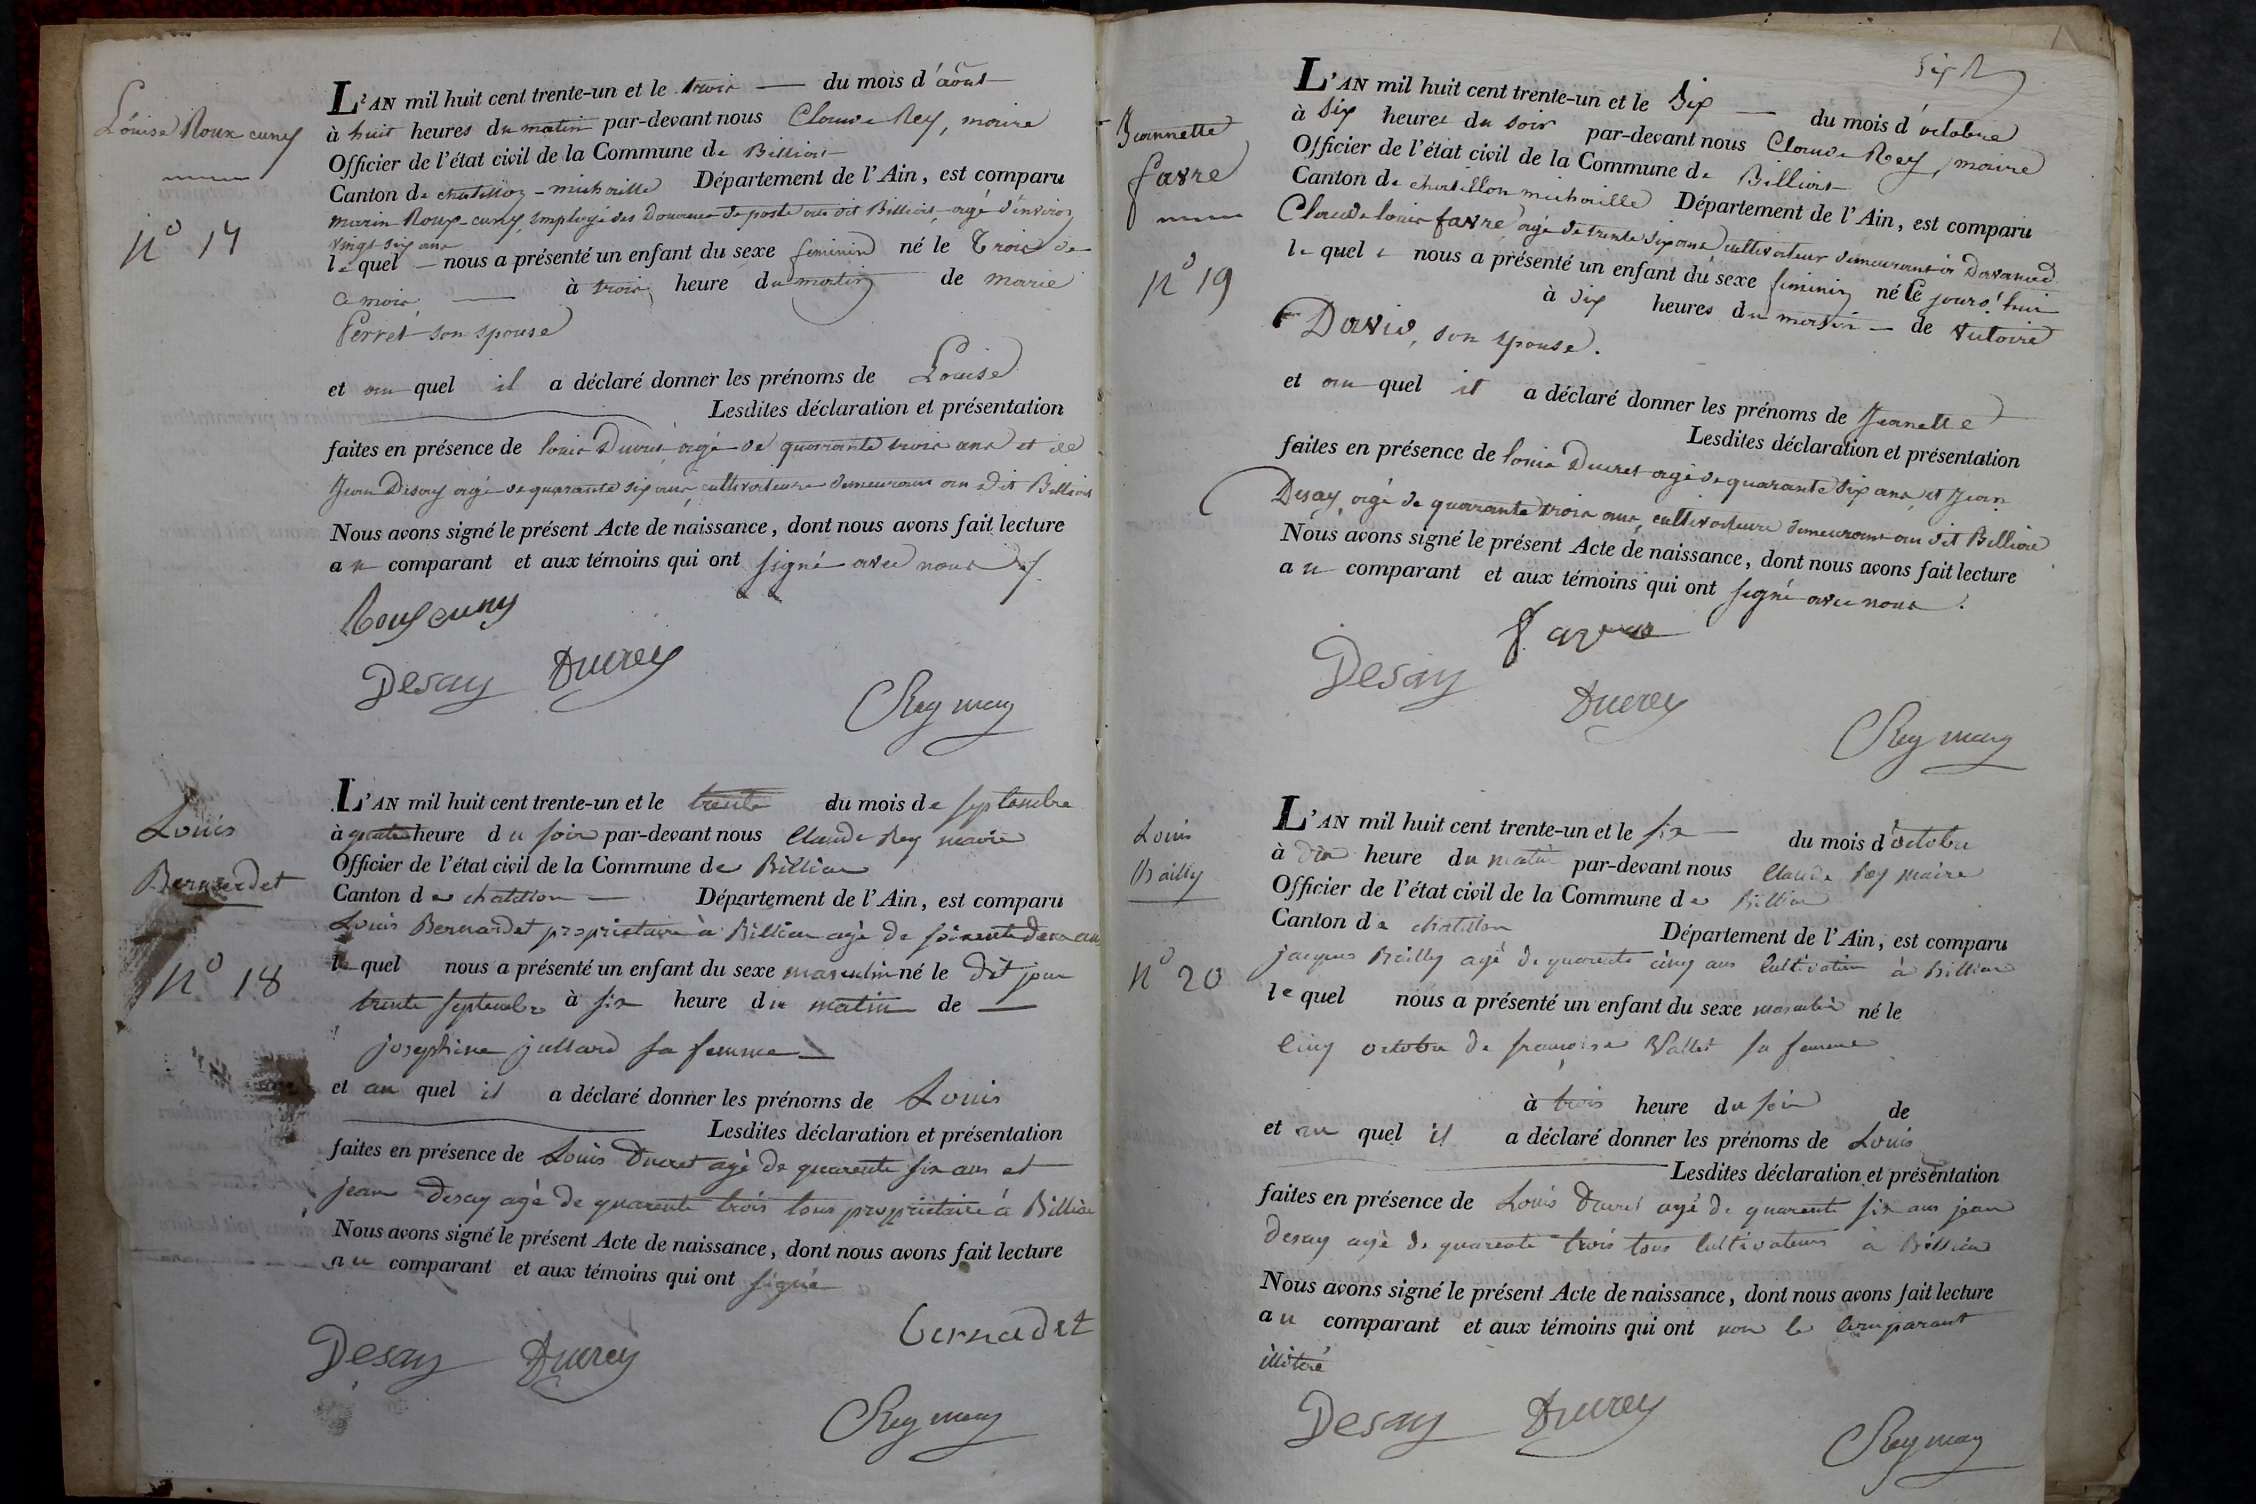 Louise Roux cuny
n° 17
L'AN mil huit cent trente-un et le trois du mois d'août
à huit heures du matin par-devant nous Claude Rey, maire
Officier de l'état civil de la Commune de Billiat
Canton de chatillon-michaille Département de l'Ain, est comparu
marin Roux-cuny, employé des Douanes de poste au dit Billiat, agé d'environ
vingt six ans
le quel nous a présenté un enfant du sexe feminin né le Trois de
ce mois à trois heure du matin de marie
Perret son epouse
et au quel il a déclaré donner les prénoms de Louise
Lesdites déclaration et présentation
faites en présence de louis Ducret agé de quarante trois ans et de
Jean Desay agé de quarante six ans, cultivateurs demeurans au dit Billiat
Nous avons signé le présent Acte de naissance, dont nous avons fait lecture
au comparant et aux témoins qui ont signé avec nous
Roux cuny
Desay Ducrey
CRey mary
Louis
Bernardet
n° 18
L'AN mil huit cent trente-un et le trente du mois de septembre
à quatre heure du soir par-devant nous Claude Rey maire
Officier de l'état civil de la Commune de Billiat
Canton de chatillon Département de l'Ain, est comparu
Louis Bernardet propriétaire à Billiat agé de soixente deux ans
le quel nous a présenté un enfant du sexe masculin né le dit jour
trente septembre à six heure du matin de
josephine jullard sa femme
et au quel il a déclaré donner les prénoms de Louis
Lesdites déclaration et présentation
faites en présence de Louis Ducret agé de quarente six ans et
jean desay agé de quarente trois tous propriétaire à Billiat
Nous avons signé le présent Acte de naissance, dont nous avons fait lecture
au comparant et aux témoins qui ont signé
bernadet
Desay Ducrey
CRey mary
Jeannette
favre
n° 19
L'AN mil huit cent trente-un et le Six du mois d'octobre
à six heures du soir par-devant nous Claude Rey, maire
Officier de l'état civil de la Commune de Billiat
Canton de chatillon michaille Département de l'Ain, est comparu
Claude louis favre agé de trente six ans, cultivateur demeurant à Davanod
le quel nous a présenté un enfant du sexe feminin né le jourd'hui
à six heures du matin de victoire
David, son epouse.
et au quel il a déclaré donner les prénoms de Jeanette
Lesdites déclaration et présentation
faites en présence de louis Ducret agé de quarante six ans, et Jean
Desay, agé de quarante trois ans, cultivateurs demeurans au dit Billiat
Nous avons signé le présent Acte de naissance, dont nous avons fait lecture
au comparant et aux témoins qui ont signé avec nous.
favre
Desay
Ducrey
CRey mary
Louis
Bailly
n° 20
L'AN mil huit cent trente-un et le six du mois d'octobre
à dix heure du matin par-devant nous Claude Rey maire
Officier de l'état civil de la Commune de Billiat
Canton de chatillon Département de l'Ain, est comparu
jacques Bailly agé de quarente cinq ans Cultivateur à Billiat
le quel nous a présenté un enfant du sexe masculin né le
Cinq octobre de françoise Vallet sa femme
à trois heure du soir de
et au quel il a déclaré donner les prénoms de Louis
Lesdites déclaration et présentation
faites en présence de Louis Ducret agé de quarente six ans jean
Desay agé de quarente trois tous Cultivateurs à Billiat
Nous avons signé le présent Acte de naissance, dont nous avons fait lecture
au comparant et aux témoins qui ont non le Comparant
illitéré
Desay Ducrey
CRey mary